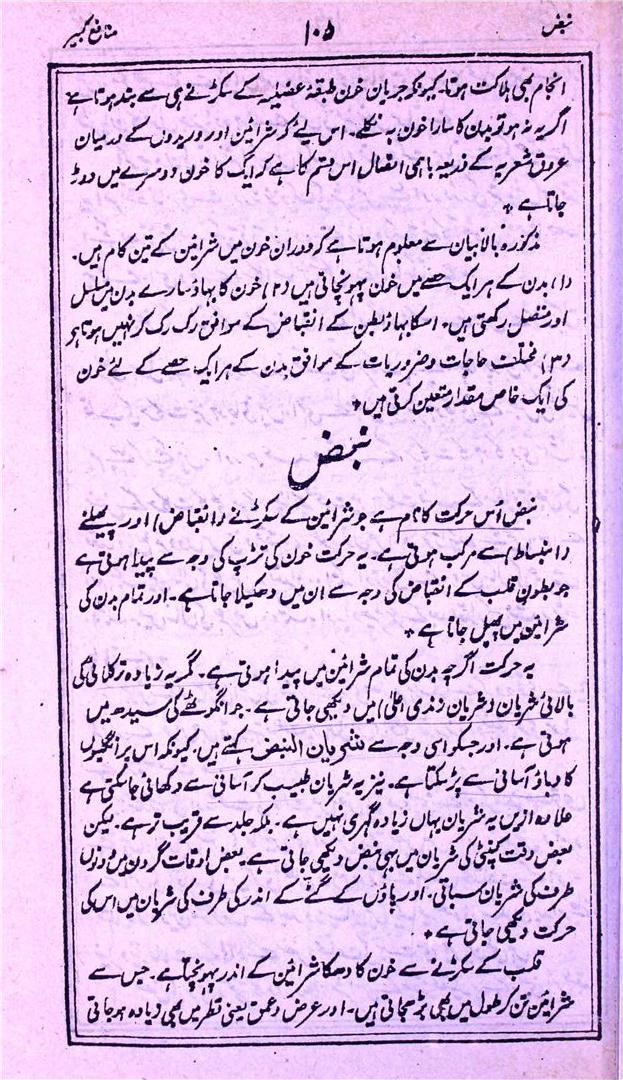 نبض ۱۰۵ منافع کبیر
انجام بھی ہلاکت ہوتا۔ کیونکہ جریان خون طبقۂ عضلیہ کے سکڑنے ہی سے بند ہوتا ہے
اگر یہ نہ ہو تو بدن کا سارا خون بہ نکلے۔ اس لیے کہ شرائین اور وریدوں کے درمیان
عروق شعریہ کے ذریعہ باہمی اتصال اس قسم کا ہے کہ ایک کا خون دوسرے میں دوڑ
جاتا ہے ٭
مذکورہ بالا بیان سے معلوم ہوتا ہے کہ دوران خون میں شرائین کے تین کام ہیں۔
(۱) بدن کے ہر ایک حصے میں خون پہونچاتی ہیں (۲) خون کا بہاؤ سارے بدن میں مسلسل
اور متصل رکھتی ہیں۔ اسکا بہاؤ بطن کے انقباض کے موافق رک رک کر نہیں ہوتا ہے
(۳) مختلف حاجات و ضروریات کے موافق بدن کے ہر ایک حصے کے لئے خون
کی ایک خاص مقدار متعین کرتی ہیں ٭
نبض
نبض اُس حرکت کا نام ہے جو شرائین کے سکڑنے (انقباض) اور پھیلنے
(انبساط) سے مرکب ہوتی ہے۔ یہ حرکت خون کی تڑپ کی وجہ سے پیدا ہوتی ہے
جو بطون قلب کے انقباض کی وجہ سے ان میں دھکیلا جاتا ہے۔ اور تمام بدن کی
شرائین میں پھیل جاتا ہے ٭
یہ حرکت اگرچہ بدن کی تمام شرائین میں پیدا ہوتی ہے۔ مگر یہ زیادہ تر کلائی کی
بالائی شریان (شریان زندی اعلیٰ) میں دیکھی جاتی ہے۔ جو انگوٹھے کی سیدھ میں
ہوتی ہے۔ اور جسکو اسی وجہ سے شریان النبض کہتے ہیں۔ کیونکہ اس پر انگلیوں
کا دباؤ آسانی سے پڑ سکتا ہے۔ نیز یہ شریان طبیب کو آسانی سے دکھائی جا سکتی ہے
علاوہ ازیں یہ شریان یہاں زیادہ گہری نہیں ہے۔ بلکہ جلد سے قریب تر ہے۔ لیکن
بعض وقت کنپٹی کی شریان میں بھی نبض دیکھی جاتی ہے۔ بعض اوقات گردن میں دونوں
طرف کی شریان سباتی۔ اور پاؤں کے گٹے کے اندر کی طرف کی شریان میں اس کی
حرکت دیکھی جاتی ہے ٭
قلب کے سکڑنے سے خون کا دھکا شرائین کے اندر پہونچتا ہے۔ جس سے
شرائین تن کر طول میں بھی بڑھ جاتی ہیں۔ اور عرض و عمق یعنی قطر میں بھی زیادہ ہو جاتی